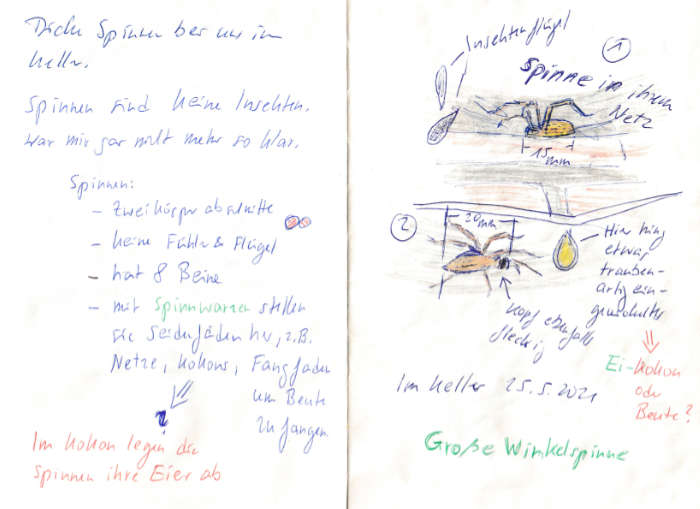 Dicke Spinnen bei uns im
Keller.
Spinnen sind keine Insekten.
War mir gar nicht mehr so klar.
Spinnen:
- Zwei körper abschnitte
- keine Fühler & Flügel
- hat 8 Beine
- mit Spinnwarzen stellen
sie Seidenfäden her, z.B.
Netze, Kokons, Fangfäden
um Beute
zu fangen
?
Im Kokon legen die
Spinnen ihre Eier ab
Insektenflügel
1
Spinne in ihrem
Netz
15mm
2
20mm
Hier hing
etwas
trauben-
artig ein-
gewickeltes
Kopf ebenfalls
fleckig
Ei-Kokon
oder
Beute?
Im Keller 25.5.2021
Große Winkelspinne